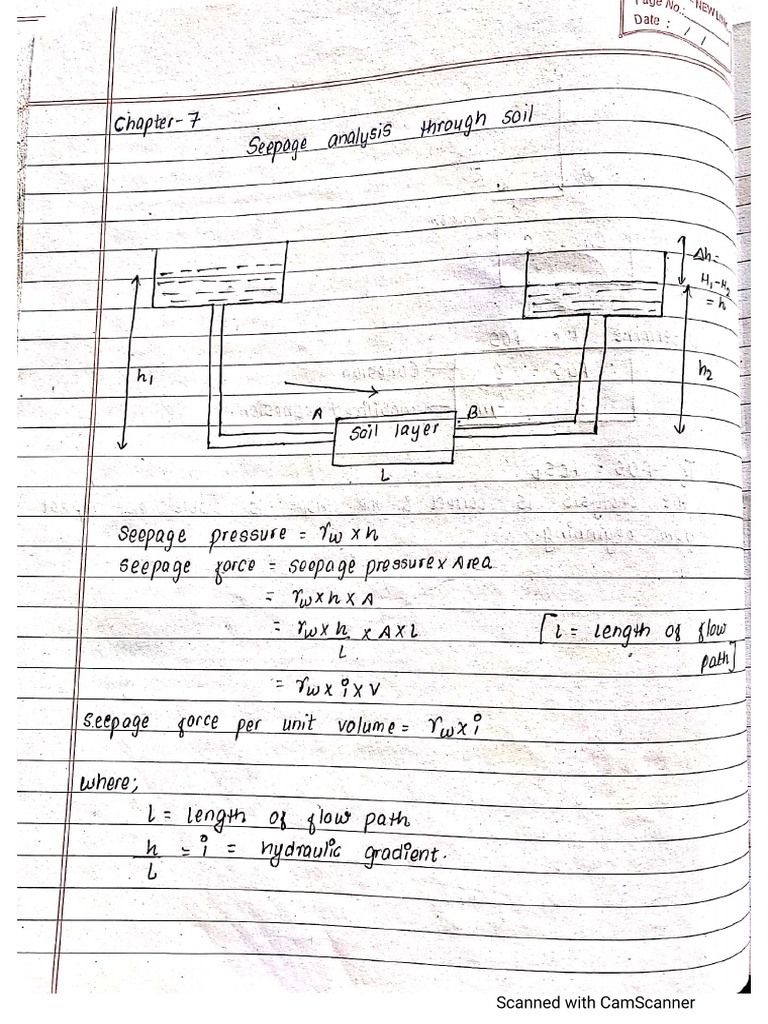 Page No.:
NEW LINK
Date : / /
Chapter-7
Seepage analysis through soil
Δh=
H₁-H₂
= h
h₁
h₂
A
B
Soil layer
L
Seepage pressure = γw x h
Seepage force = seepage pressure x Area
= γw x h x A
= γw x h/L x A x L
[L = length of flow
path]
= γw x i x V
Seepage force per unit volume = γw x i
where;
L = length of flow path
h/L = i = hydraulic gradient.
Scanned with CamScanner